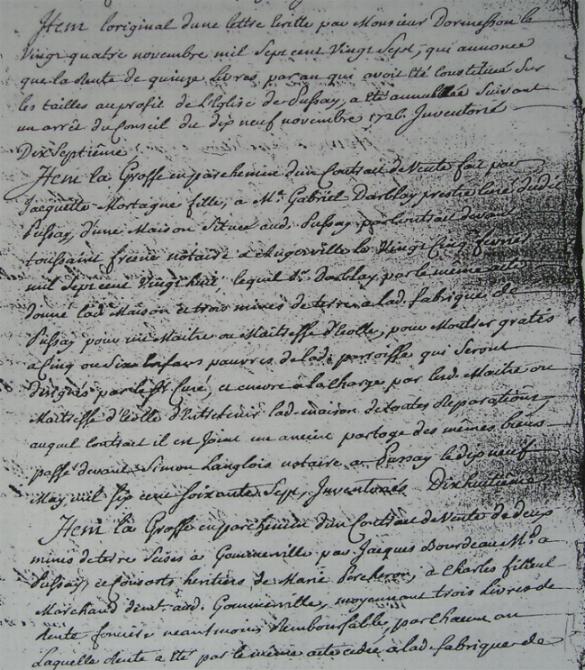 Item l'original d'une lettre écritte par Monsieur Dormesson le
Vingt quatre novembre mil Sept cent Vingt Sept, qui annonce
que la Rente de quinze Livres par an qui avoit été constituée Sur
les tailles au profit de l'Eglise de Pussay, a été annullée Suivant
un arrêt du Conseil du dix neuf novembre 1726. Inventorié
Dix Septième
Item la Grosse en parchemin d'un Contrait de Vente fait par
Jacquette Mortagne fille, a Mr. Gabriel Darblay prestre Curé dudit
Pussay, d'une Maison Située aud. Pussay par Contrait devant
toussaint fresne notaire a Angerville le Vingt Cinq fevrier
mil Sept cent Vingt huit, lequel Sr. Darblay par le même acte
donné lad. Maison et trois mines de terre a la d. fabrique de
Pussay pour un Maitre ou Maitresse d'Ecolle, pour Montrer gratis
a Cinq ou Six enfans pauvres de lad. parroisse qui Seront
désignés par le Sr. Curé, et encore a la Charge par led. Maitre ou
Maitresse d'Ecolle d'Entretenir lad. maison de toutes Réparations,
auquel Contrait il en Joint un ancien partage des mêmes biens
passé devant Simon Langlois notaire a Pussay le dix neuf
May mil Six cent Soixante Sept, Inventoriés Dixhuitième
Item la Grosse en parchemin d'un Contrait de Vente de deux
mines de terre Sises à Gommerville par Jacques Bourdeau Md. a
Pussay, et Consorts heritiers de Marie Porcheron, à Charles filleul
Marchand dem.t aud. Gommerville, moyennant trois Livres de
Rente fonciere neantmoins Remboursable, par chacun an
Laquelle Rente a été par le même acte cédée a lad. fabrique de